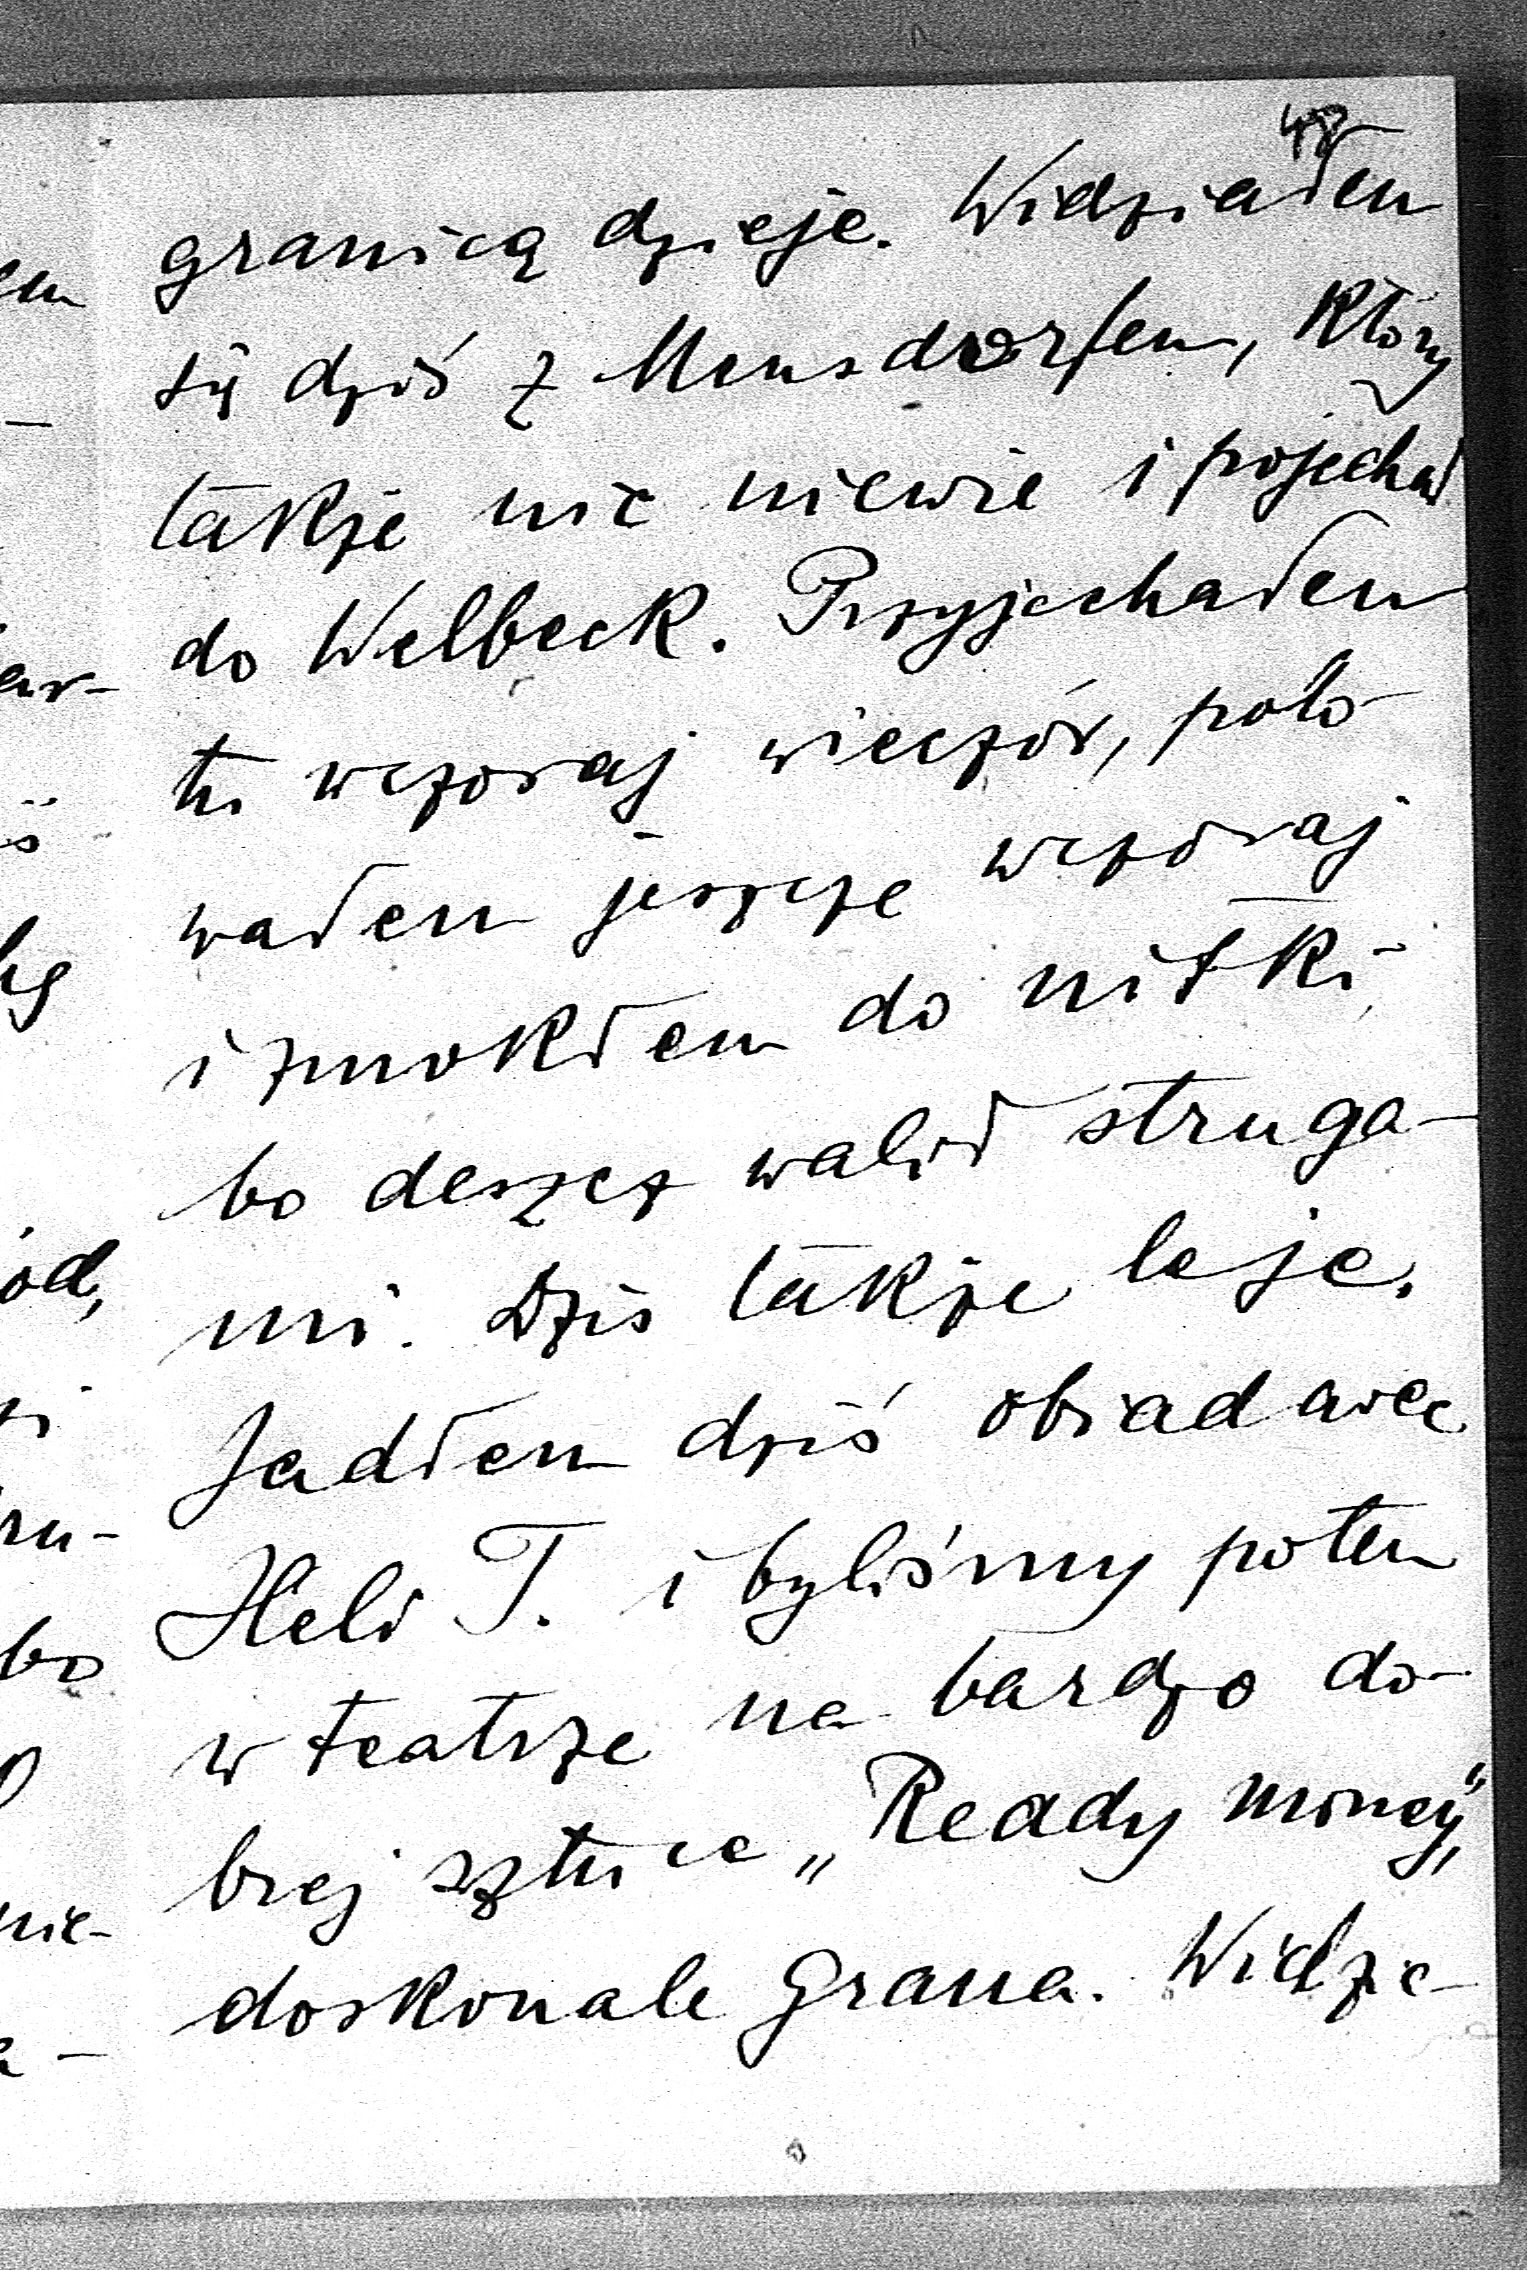 48
granicą dzieje. Widziałem
się dziś z Mensdorfem, który
także nic niewie i pojechał
do Welbeck. Przyjechałem
tu wczoraj wieczór, polo-
wałem jeszcze wczoraj
i zmokłem do nitki,
bo deszcz walił struga-
mi. Dziś także leje.
Jadłem dziś obiad avec
Heli T. i byliśmy potem
w teatrze na bardzo do-
brej sztuce „Ready money",
doskonale grana. Widzie-